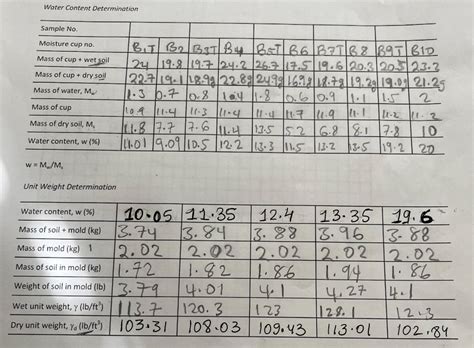 Water Content Determination
Sample No.
Moisture cup no. B1T B2 B3T B4 B5T B6 B7T B8 B9T B10
Mass of cup + wet soil 24 19.8 19.7 24.2 26.7 17.5 19.6 20.3 20.5 23.3
Mass of cup + dry soil 22.7 19.1 18.9g 22.8g 24.9g 16.9g 18.7g 19.2g 19.0g 21.2g
Mass of water, Mw 1.3 0.7 0.8 1.4 1.8 0.6 0.9 1.1 1.5 2
Mass of cup 10.9 11.4 11.3 11.4 11.4 11.7 11.9 11.1 11.2 11.2
Mass of dry soil, Ms 11.8 7.7 7.6 11.4 13.5 5.2 6.8 8.1 7.8 10
Water content, w (%) 11.01 9.09 10.5 12.2 13.3 11.5 13.2 13.5 19.2 20
w = Mw/Ms
Unit Weight Determination
Water content, w (%) 10.05 11.35 12.4 13.35 19.6
Mass of soil + mold (kg) 3.74 3.84 3.88 3.96 3.88
Mass of mold (kg) 1 2.02 2.02 2.02 2.02 2.02
Mass of soil in mold (kg) 1.72 1.82 1.86 1.94 1.86
Weight of soil in mold (lb) 3.79 4.01 4.1 4.27 4.1
Wet unit weight, γ (lb/ft³) 113.7 120.3 123 128.1 12.3
Dry unit weight, γd (lb/ft³) 103.31 108.03 109.43 113.01 102.84